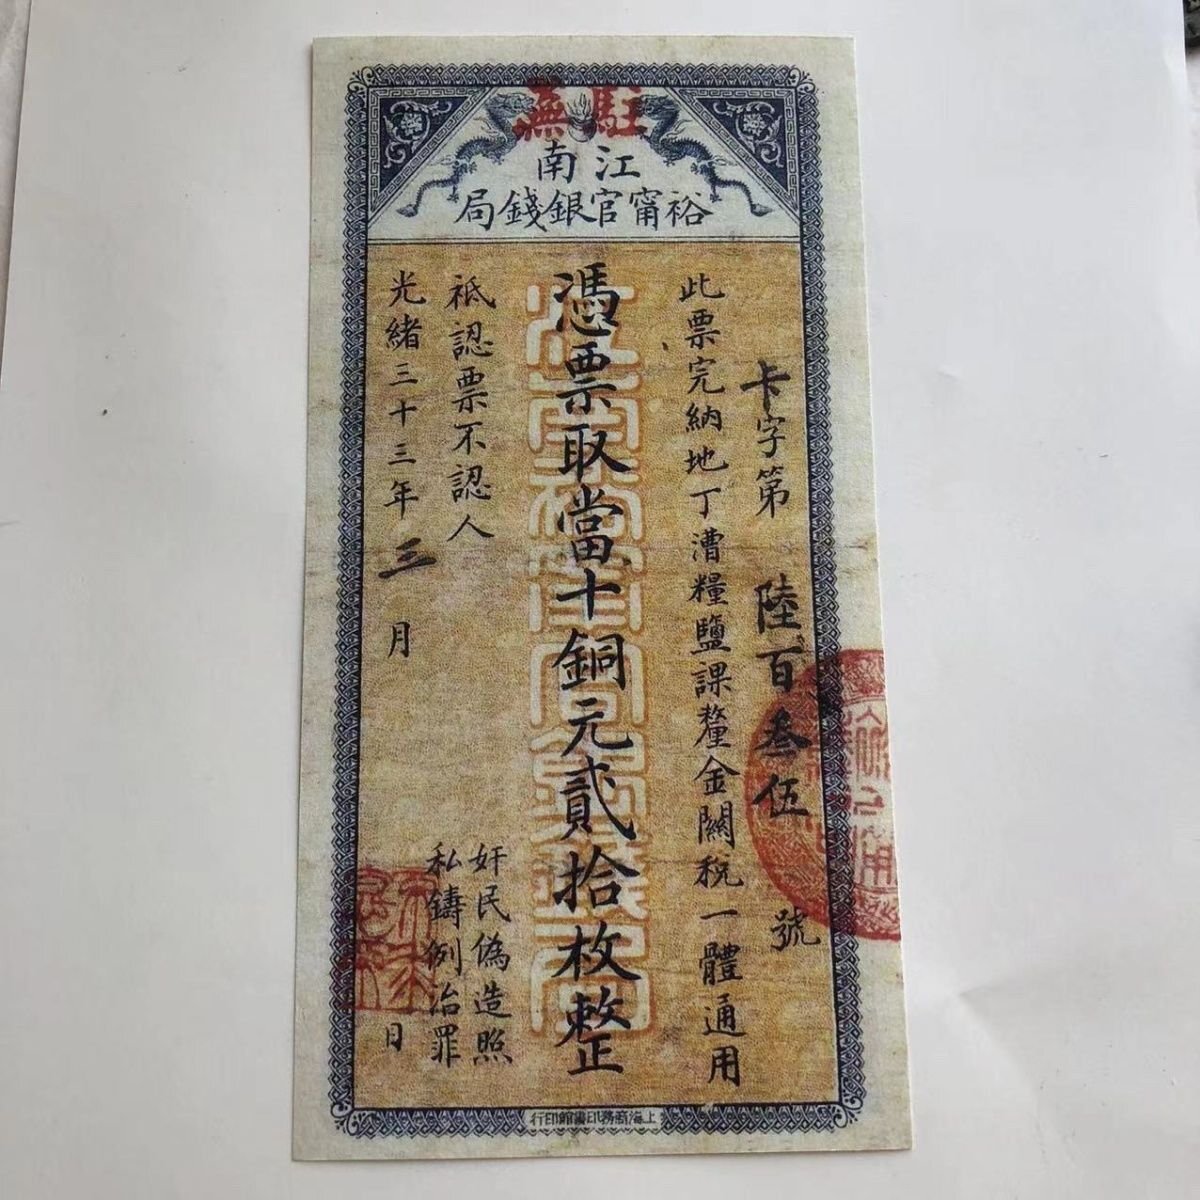 駐蕪
江南
裕甯官銀錢局
卡字第陸百叁伍號
此票完納地丁漕糧鹽課釐金關稅一體通用
憑票取當十銅元貳拾枚整
祗認票不認人
奸民偽造照
私鑄例治罪
光緒三十三年三月 日
上海商務印書館印行